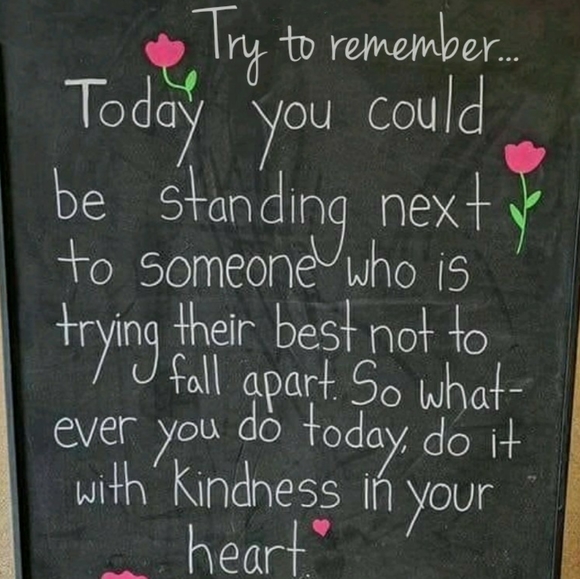 Try to remember...
Today you could
be standing next
to someone who is
trying their best not to
fall apart. So what-
ever you do today, do it
with kindness in your
heart.